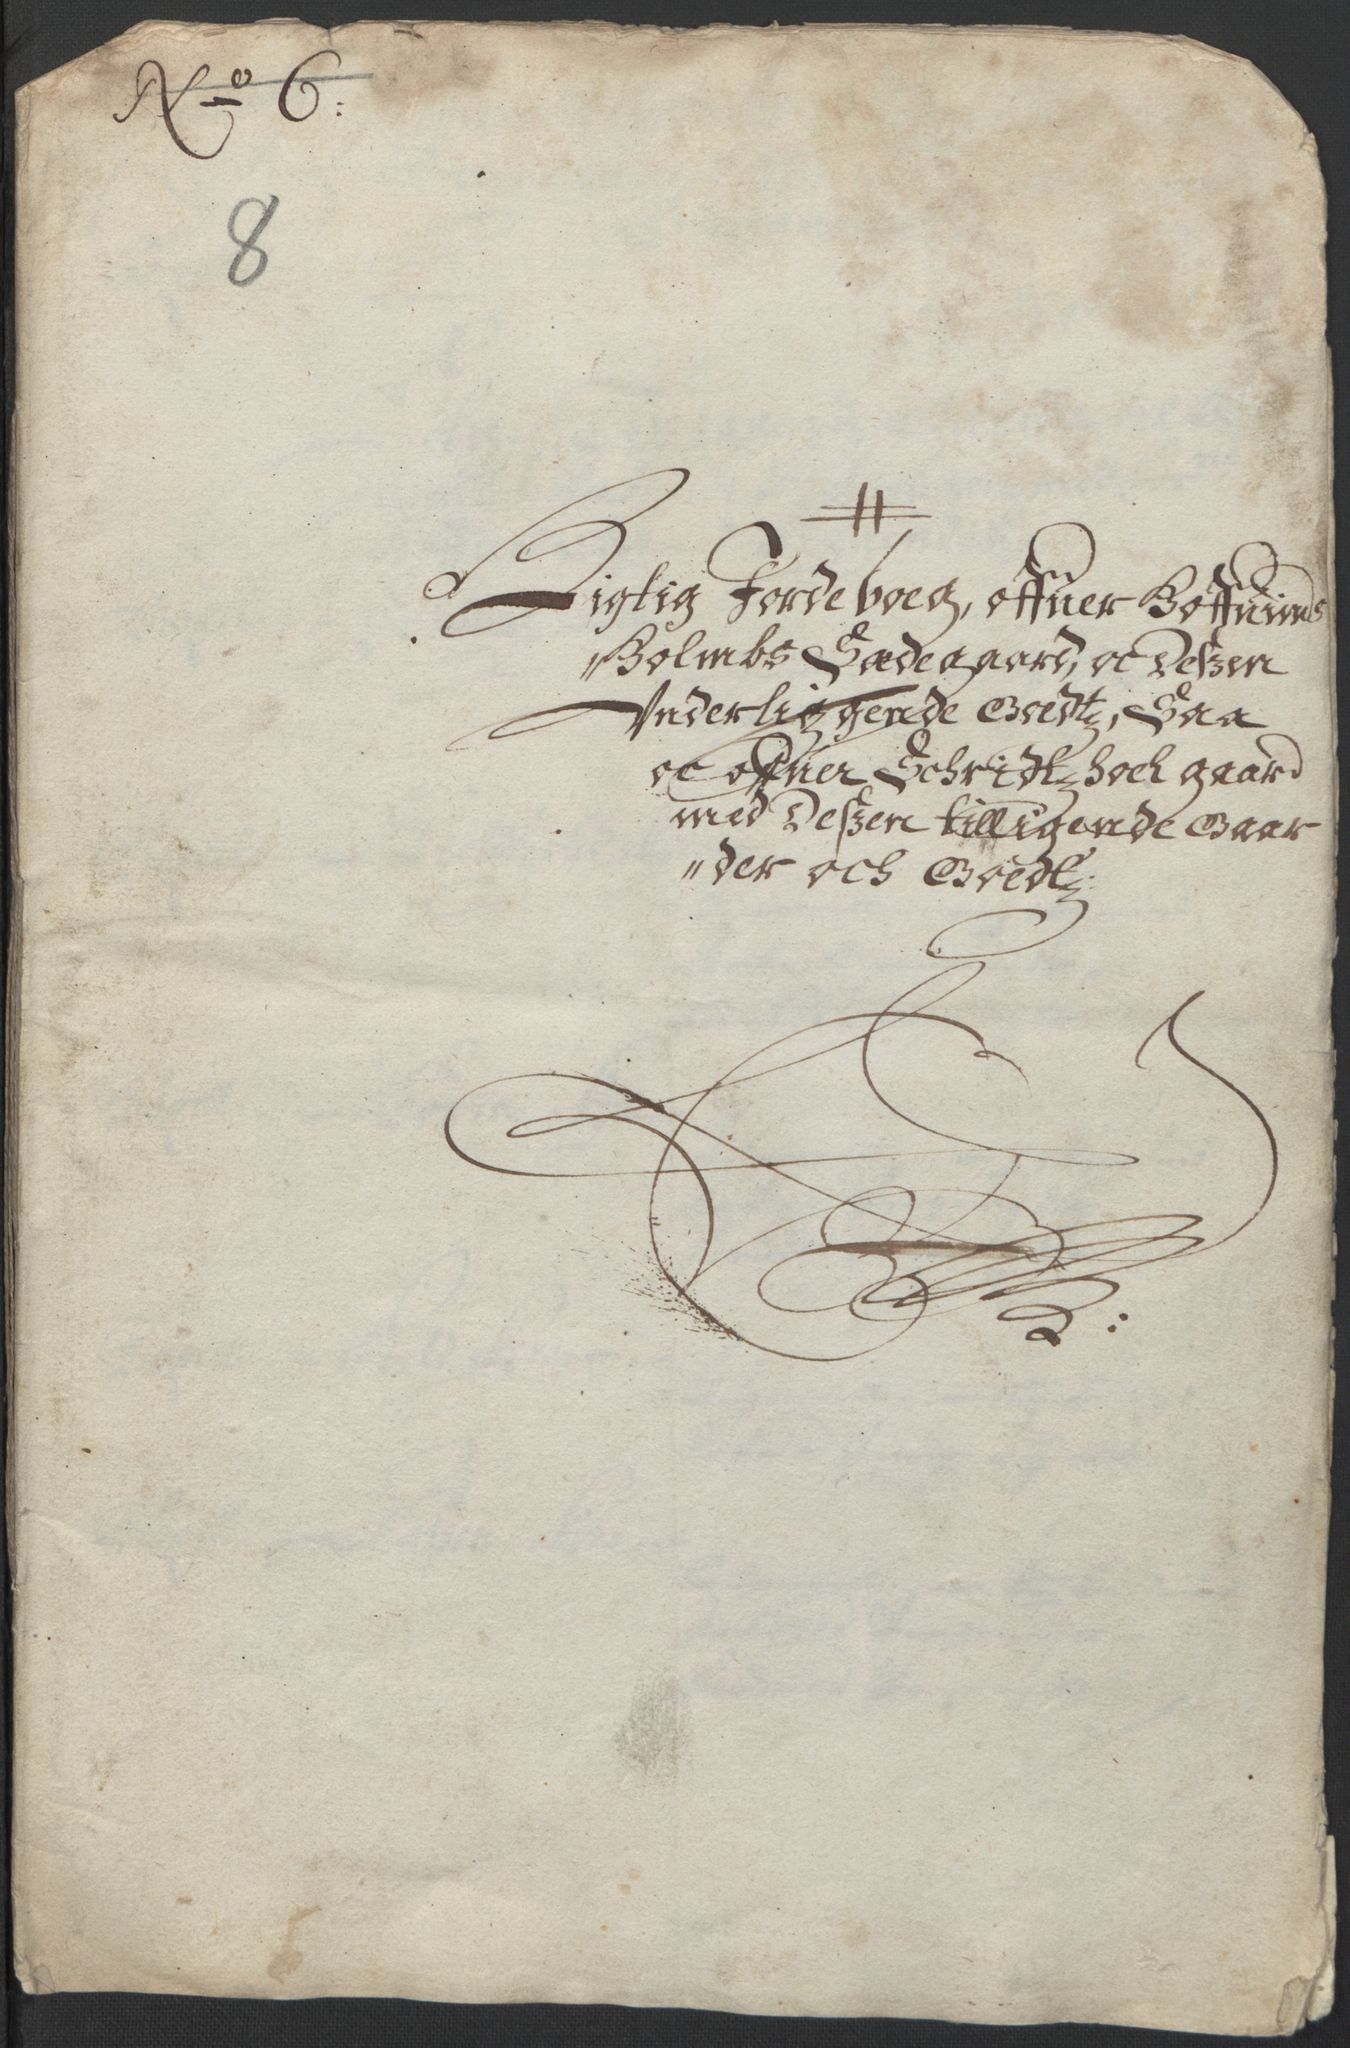 No 6:
8
Rigtig Jordeboeg, offuer Boffuims
"Holmbs Sædegaard, oc Deszen
Vnderliggende Goedtz, Saa
oc offuer Schridtzhoel gaard
med Deszen tilligende Gaar
"der och Goedtz: